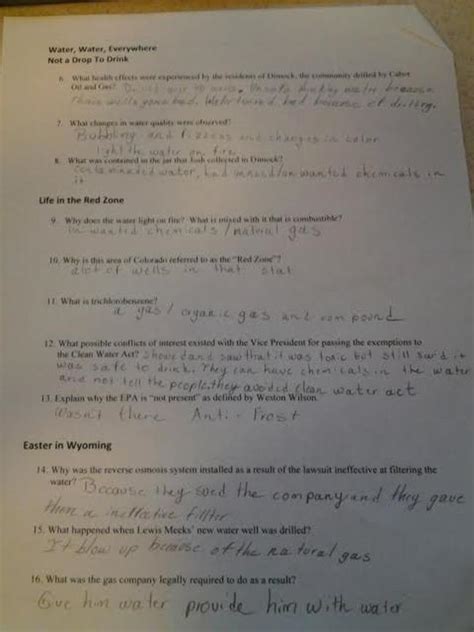 Water, Water, Everywhere
Not a Drop To Drink
6. What health effects were experienced by the residents of Dimock, the community drilled by Cabot
Oil and Gas? water because
wells gone bad. Water turned bad because of drilling.
7. What changes in water quality were observed?
Bubbling and fizzess and changes in color
light the water on fire
8. What was contained in the jar that Josh collected in Dimock?
Contaminated water, had unwanted chemicals in
it
Life in the Red Zone
9. Why does the water light on fire? What is mixed with it that is combustible?
unwanted chemicals / natural gas
10. Why is this area of Colorado referred to as the "Red Zone"?
alot of wells in that stat
11. What is trichlorobenzene?
a gas / organic gas and compound
12. What possible conflicts of interest existed with the Vice President for passing the exemptions to
the Clean Water Act? and saw that it was toxic but still said it
was safe to drink. They can have chemicals in the water
and not tell the people, they avoided clean water act
13. Explain why the EPA is "not present" as defined by Weston Wilson.
Wasn't there Anti - Frost
Easter in Wyoming
14. Why was the reverse osmosis system installed as a result of the lawsuit ineffective at filtering the
water? Because they sued the company and they gave
them a ineffective fillter
15. What happened when Lewis Meeks' new water well was drilled?
It blow up because of the natural gas
16. What was the gas company legally required to do as a result?
Give him water provide him with water